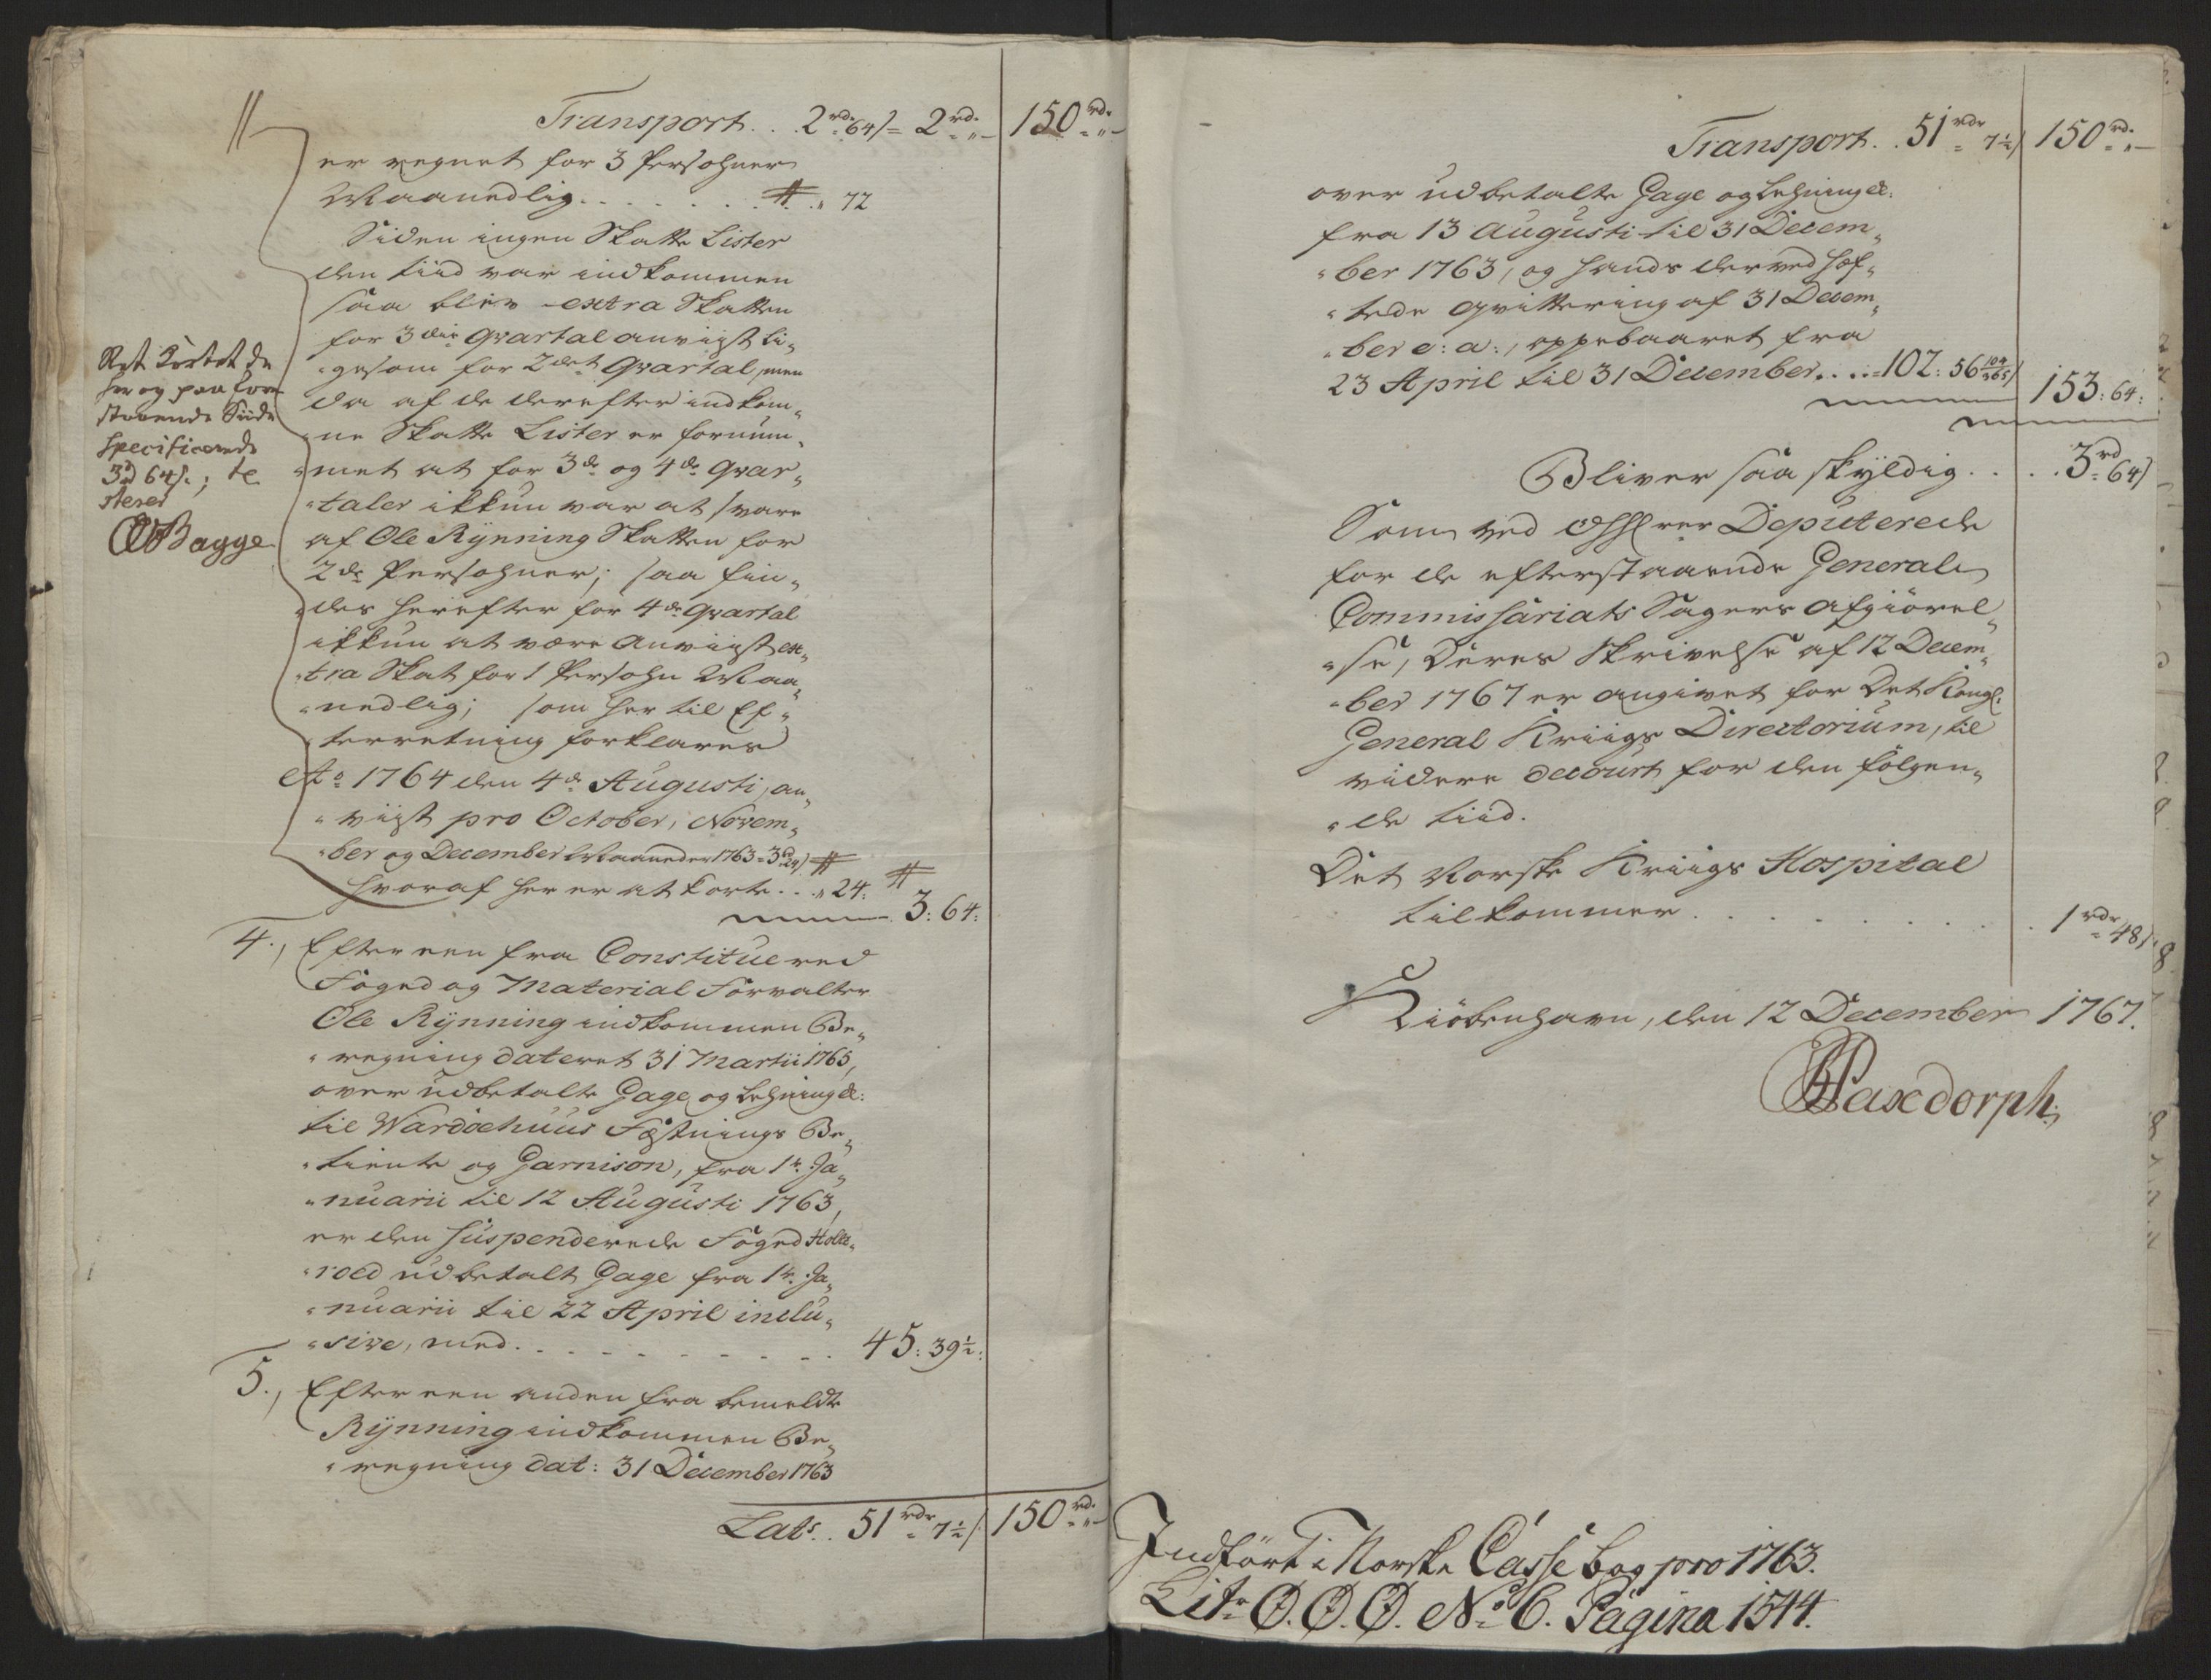 Transport. . . 2rd. 64s = 2rd. „ – 150rd. „ –
er regnet for 3 Persohner
Maanedlig . . . . . . . „ 72
Siden ingen Skatte Lister
den tiid var indkommen
saa blev extra Skatten
for 3die Qvartal anviist li„
„gesom for 2det Qvartal, men
da af de derefter indkom„
„ne Skatte Lister er fornum„
„met at for 3de og 4de Qvar„
„taler ikkun var at svare
af Ole Rÿnning Skatten for
2de Persohner; saa fin„
„des herefter for 4de Qvartal
ikkun at være Anviist ex„
„tra Skat for 1 Persohn Maa„
„nedlig; som her til Ef„
„terretning forklares
Ao 1764 den 4de Augusti, an„
„viist pro October, Novem„
„ber og December Maaneder 1763 = 3d 24s
hvoraf her er at korte . . . „ 24:
3: 64:
Ret kortet de
her og paa for
staaende Siide
Specificerede
3rd 64s.; te
steres
Bagge
4., Efter een fra Constitueret
Foged og Material Forvalter
Ole Rÿnning indkommen Be„
„regning dateret 31 Martii 1765,
over udbetalte Gage og Lehning &c:
til Wardöehuus Fæstnings Be„
„tiente og Garnison, fra 1te Ja„
„nuarii til 12 Augusti 1763,
er den suspenderede Foged Holte„
„roed udbetalt Gage fra 1te Ja„
„nuarii til 22 April inclu„
„sive, med . . . . . . . . 45: 39½:
5., Efter een anden fra bemeldte
Rÿnning indkommen Be„
„regning dat: 31 December 1763
Lats. . 51rdr 7½s 150rd. „ –
Transport. . 51rdr 7½s 150rd. „ –
over udbetalte Gage og Lehning &c:
fra 13 Augusti til 31 Decem„
„ber 1763, og hands derved hæf„
„tede qvittering af 31 Decem„
„ber e: a:, oppebaaret fra
23 April til 31 December . . . = 102: 56 104/365s
153: 64:
Bliver saa skÿldig . . . . 3rd 64s
Som ved Hrer Deputerede
for de efterstaaende General
Commissariats Sagers Afgiörel„
„se, Deres Skrivelse af 12 Decem„
„ber 1767 er angivet for Det Kongl.
General Kriigs Directorium, til
videre decourt for den fölgen„
„de tiid.
Det Norske Kriigs Hospital
tilkommer . . . . . . . . 1rdr 48s
Kiöbenhavn, den 12 December 1767.
Paxdorph.
Indfört i Norske Casse bog pro 1763.
Litr Ø.Ø.Ø. No 6. Pagina 1544.